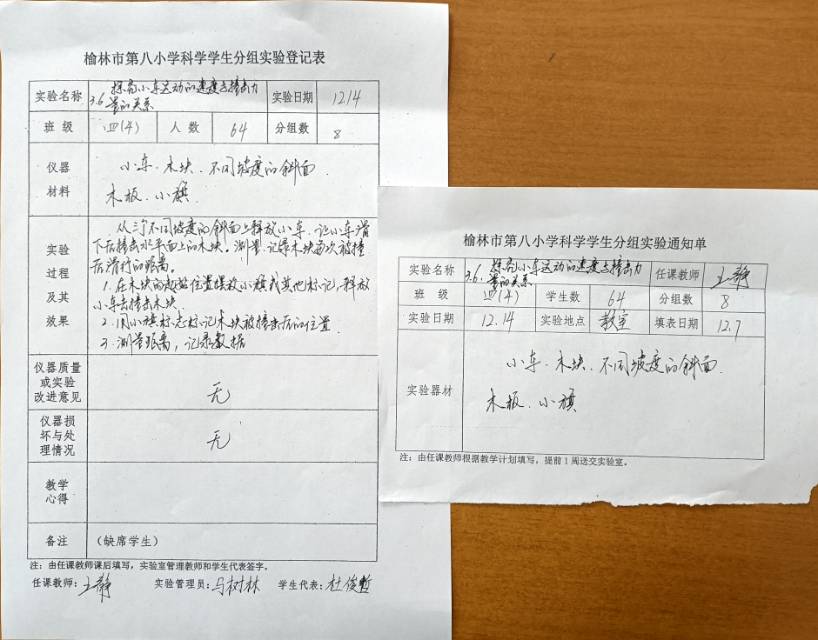 榆林市第八小学科学学生分组实验登记表
实验名称 3.6 探究小车运动的速度与撞击力量的关系 实验日期 12.14
班 级 四(4) 人 数 64 分组数 8
仪器材料 小车、木块、不同坡度的斜面、
木板、小旗
实验过程及其效果
从三个不同坡度的斜面上释放小车,记小车滑
下后撞击水平面上的木块。测量、记录木块每次被撞
后滑行的距离。
1.在木块的起始位置摆放小旗或其他标记,释放
小车去撞击木块
2.用小旗标志标记木块被撞击后的位置
3.测量距离,记录数据
仪器质量或实验改进意见 无
仪器损坏与处理情况 无
教学心得
备注 (缺席学生)
注:由任课教师课后填写,实验室管理教师和学生代表签字。
任课教师:王静 实验管理员:马树林 学生代表:杜俊哲
榆林市第八小学科学学生分组实验通知单
实验名称 3.6 探究小车运动的速度与撞击力量的关系 任课教师 王静
班 级 四(4) 学生数 64 分组数 8
实验日期 12.14 实验地点 教室 填表日期 12.7
实验器材 小车、木块、不同坡度的斜面、
木板、小旗
注:由任课教师根据教学计划填写,提前1周送交实验室。